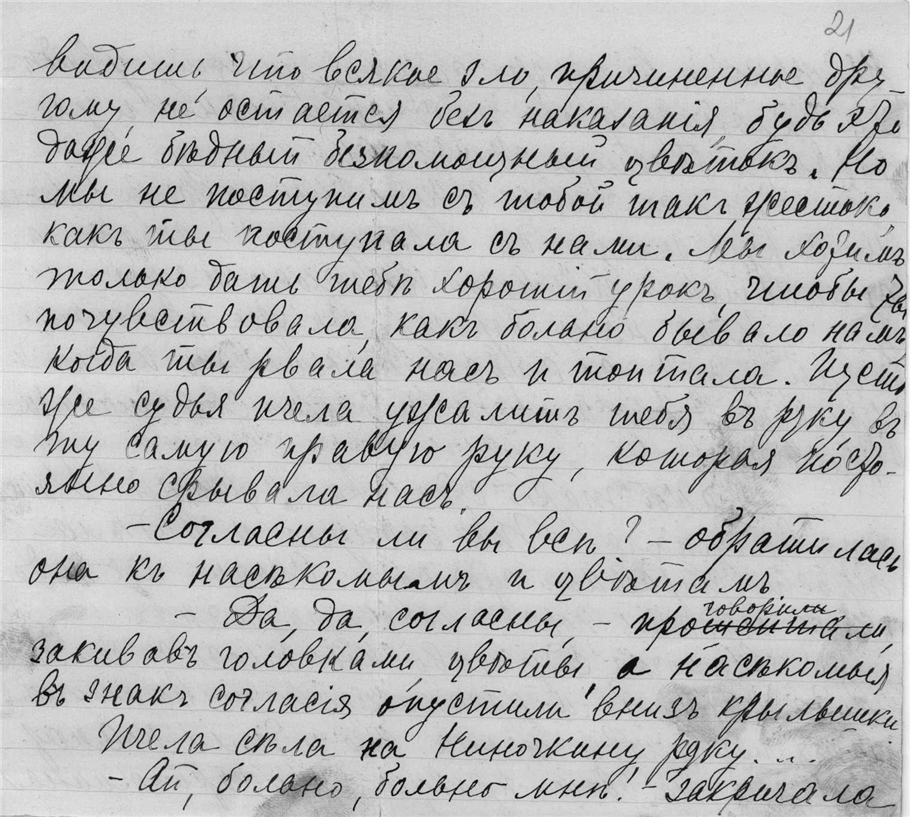 21
видишь что всякое зло, причиненное дру-
гому не остается безъ наказанія, будь это
даже бѣдный безпомощный цвѣтокъ. Но
мы не поступимъ съ тобой такъ жестоко
какъ ты поступала съ нами. Мы хотимъ
только дать тебѣ хорошій урокъ, чтобы ты
почувствовала, какъ больно бывало намъ
когда ты рвала насъ и топтала. Пусть
же судья пчела ужалитъ тебя въ руку въ
ту самую правую руку, которая посто-
янно срывала насъ.
– Согласны ли вы всѣ? – обратилась
она къ насѣкомымъ и цвѣтамъ
говорили
– Да, да, согласны, – про
закивавъ головками цвѣты, а насѣкомыя
въ знакъ согласія опустили внизъ крылышки.
Пчела сѣла на Ниночкину руку...
– Ай, больно, больно мнѣ! – закричала